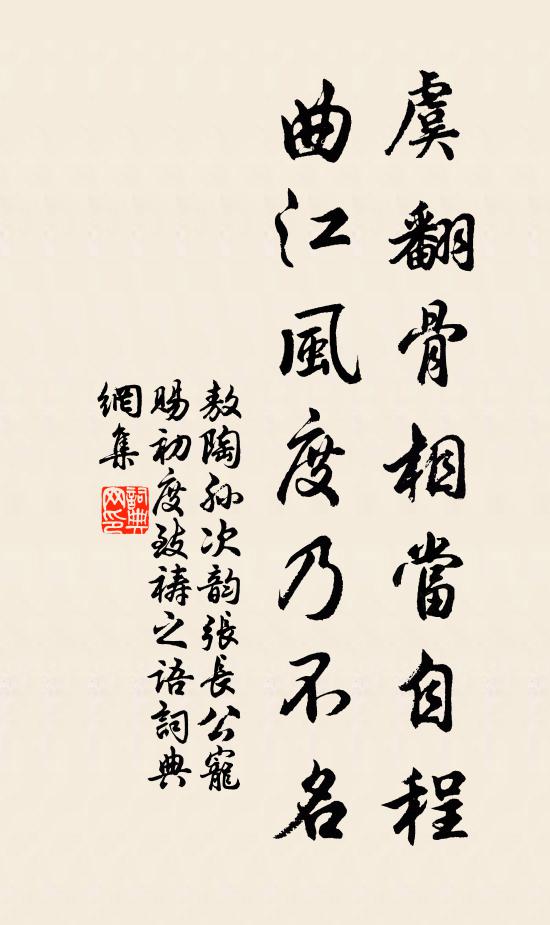 虞翻骨相當自程
曲江風度乃不名
敖陶孫次韵張長公寵
賜初度致禱之語詞典
網集
詞典
网印